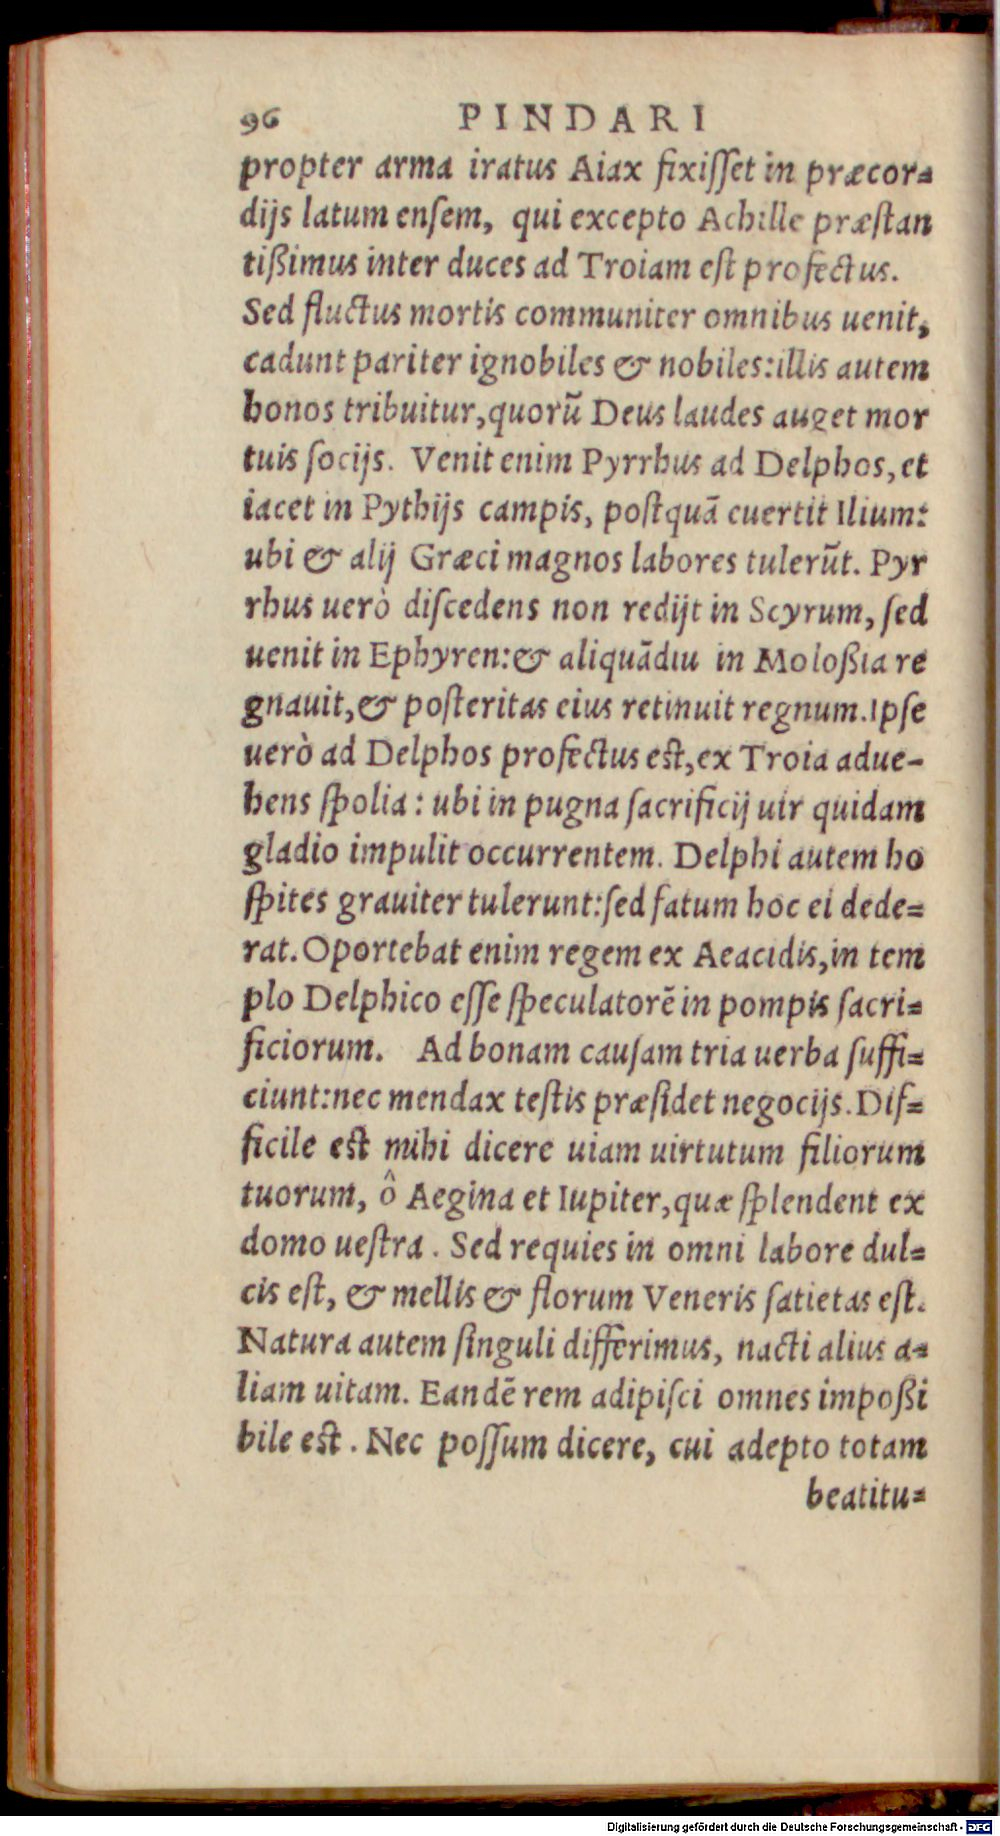 96 PINDARI
propter arma iratus Aiax fixiſſet in præcor⸗
dijs latum enſem, qui excepto Achille præſtan
tißimus inter duces ad Troiam eſt profectus.
Sed fluctus mortis communiter omnibus uenit,
cadunt pariter ignobiles & nobiles:illis autem
honos tribuitur,quorũ Deus laudes auget mor
tuis ſocijs. Venit enim Pyrrhus ad Delphos, et
iacet in Pythijs campis, poſtquã euertit Ilium:
ubi & alij Græci magnos labores tulerũt. Pyr
rhus uerò diſcedens non redijt in Scyrum, ſed
uenit in Ephyren:& aliquãdiu in Moloßia re
gnauit,& poſteritas eius retinuit regnum.Ipſe
uerò ad Delphos profectus eſt,ex Troia adue-
hens ſpolia : ubi in pugna ſacrificij uir quidam
gladio impulit occurrentem. Delphi autem ho
ſpites grauiter tulerunt:ſed fatum hoc ei dede⸗
rat. Oportebat enim regem ex Aeacidis,in tem
plo Delphico eſſe ſpeculatorẽ in pompis ſacri⸗
ficiorum. Ad bonam cauſam tria uerba ſuffi⸗
ciunt:nec mendax teſtis præſidet negocijs. Dif⸗
ficile eſt mihi dicere uiam uirtutum filiorum
tuorum, ô Aegina et Iupiter,quæ ſplendent ex
domo ueſtra. Sed requies in omni labore dul⸗
cis eſt, & mellis & florum Veneris ſatietas eſt.
Natura autem ſinguli differimus, nacti alius a⸗
liam uitam. Eandẽ rem adipiſci omnes impoßi
bile eſt. Nec poſſum dicere, cui adepto totam
beatitu⸗
Digitalisierung gefördert durch die Deutsche Forschungsgemeinschaft - DFG